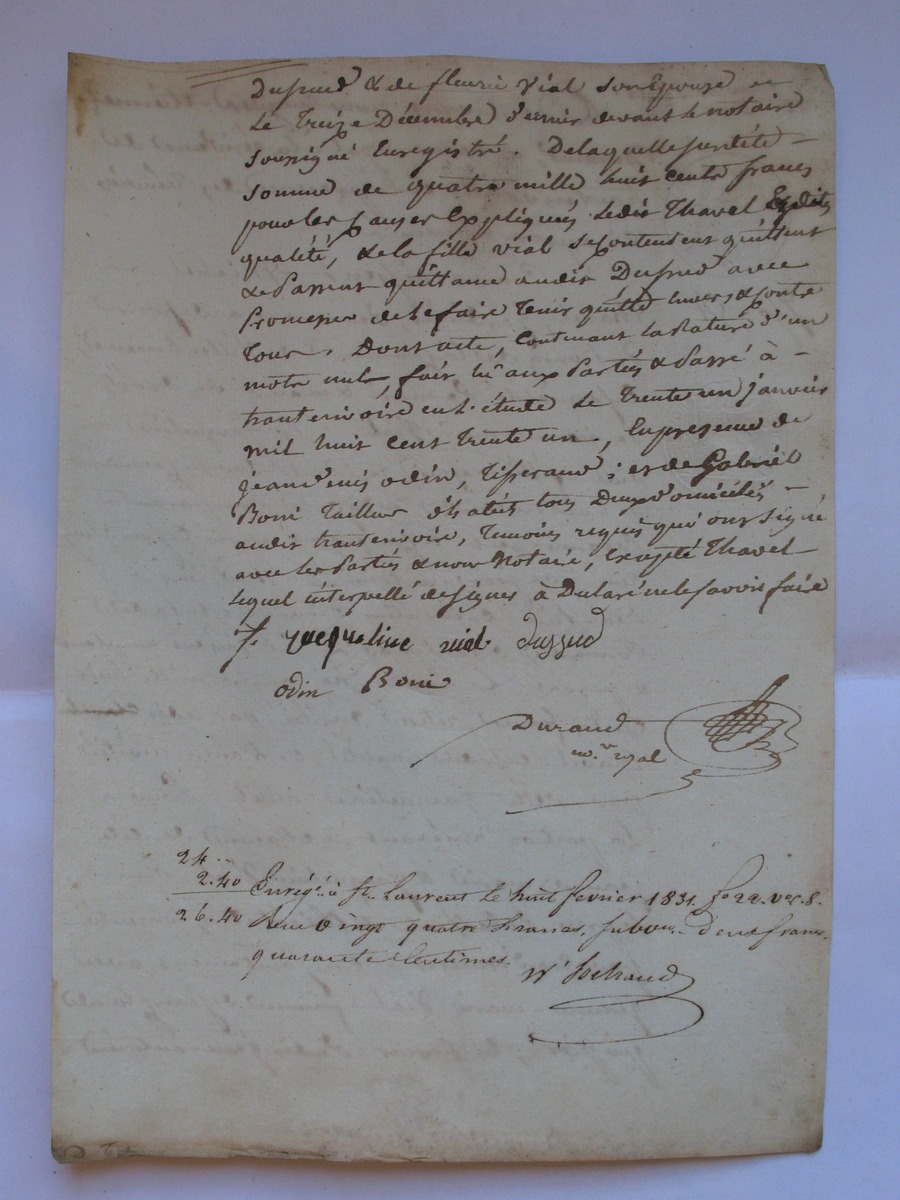 Dussud & de fleurie Vial son Epouze
le treize Décembre dernier devant le notaire
soussigné Enregistré. De laquelle susdite
somme de quatre mille huit cents francs
pour les causes Expliqués ledit Thavel Esdites
qualité, & la fille vial se contentent quittent
& Passent quittance audit Dussud avec
Promesse de le faire tenir quitte envers & contre
tous. Dont acte, contenant la Rature d'un
mots nul, fait lu aux Parties & Passé à
hauterivoire en l'étude le trente un janvier
mil huit cent trente un, En presence de
jean denis odin, tisserand; et de Gabriel
Boni tailleur d'habits tous Deux domiciliés
audit hauterivoire, temoins requis qui ont signé
avec les Parties & nous Notaire, Excepté Thavel
lequel interpellé de signer à Déclaré ne le savoir faire
f. jacqueline vial Dussud
odin Boni
Durand
no.re royal
24
2.40
26.40
Enregé. à St. Laurent le huit fevrier 1831 fo 22 vo c. 8.
Reçu vingt quatre francs, subon. deux francs
quarante Centimes.